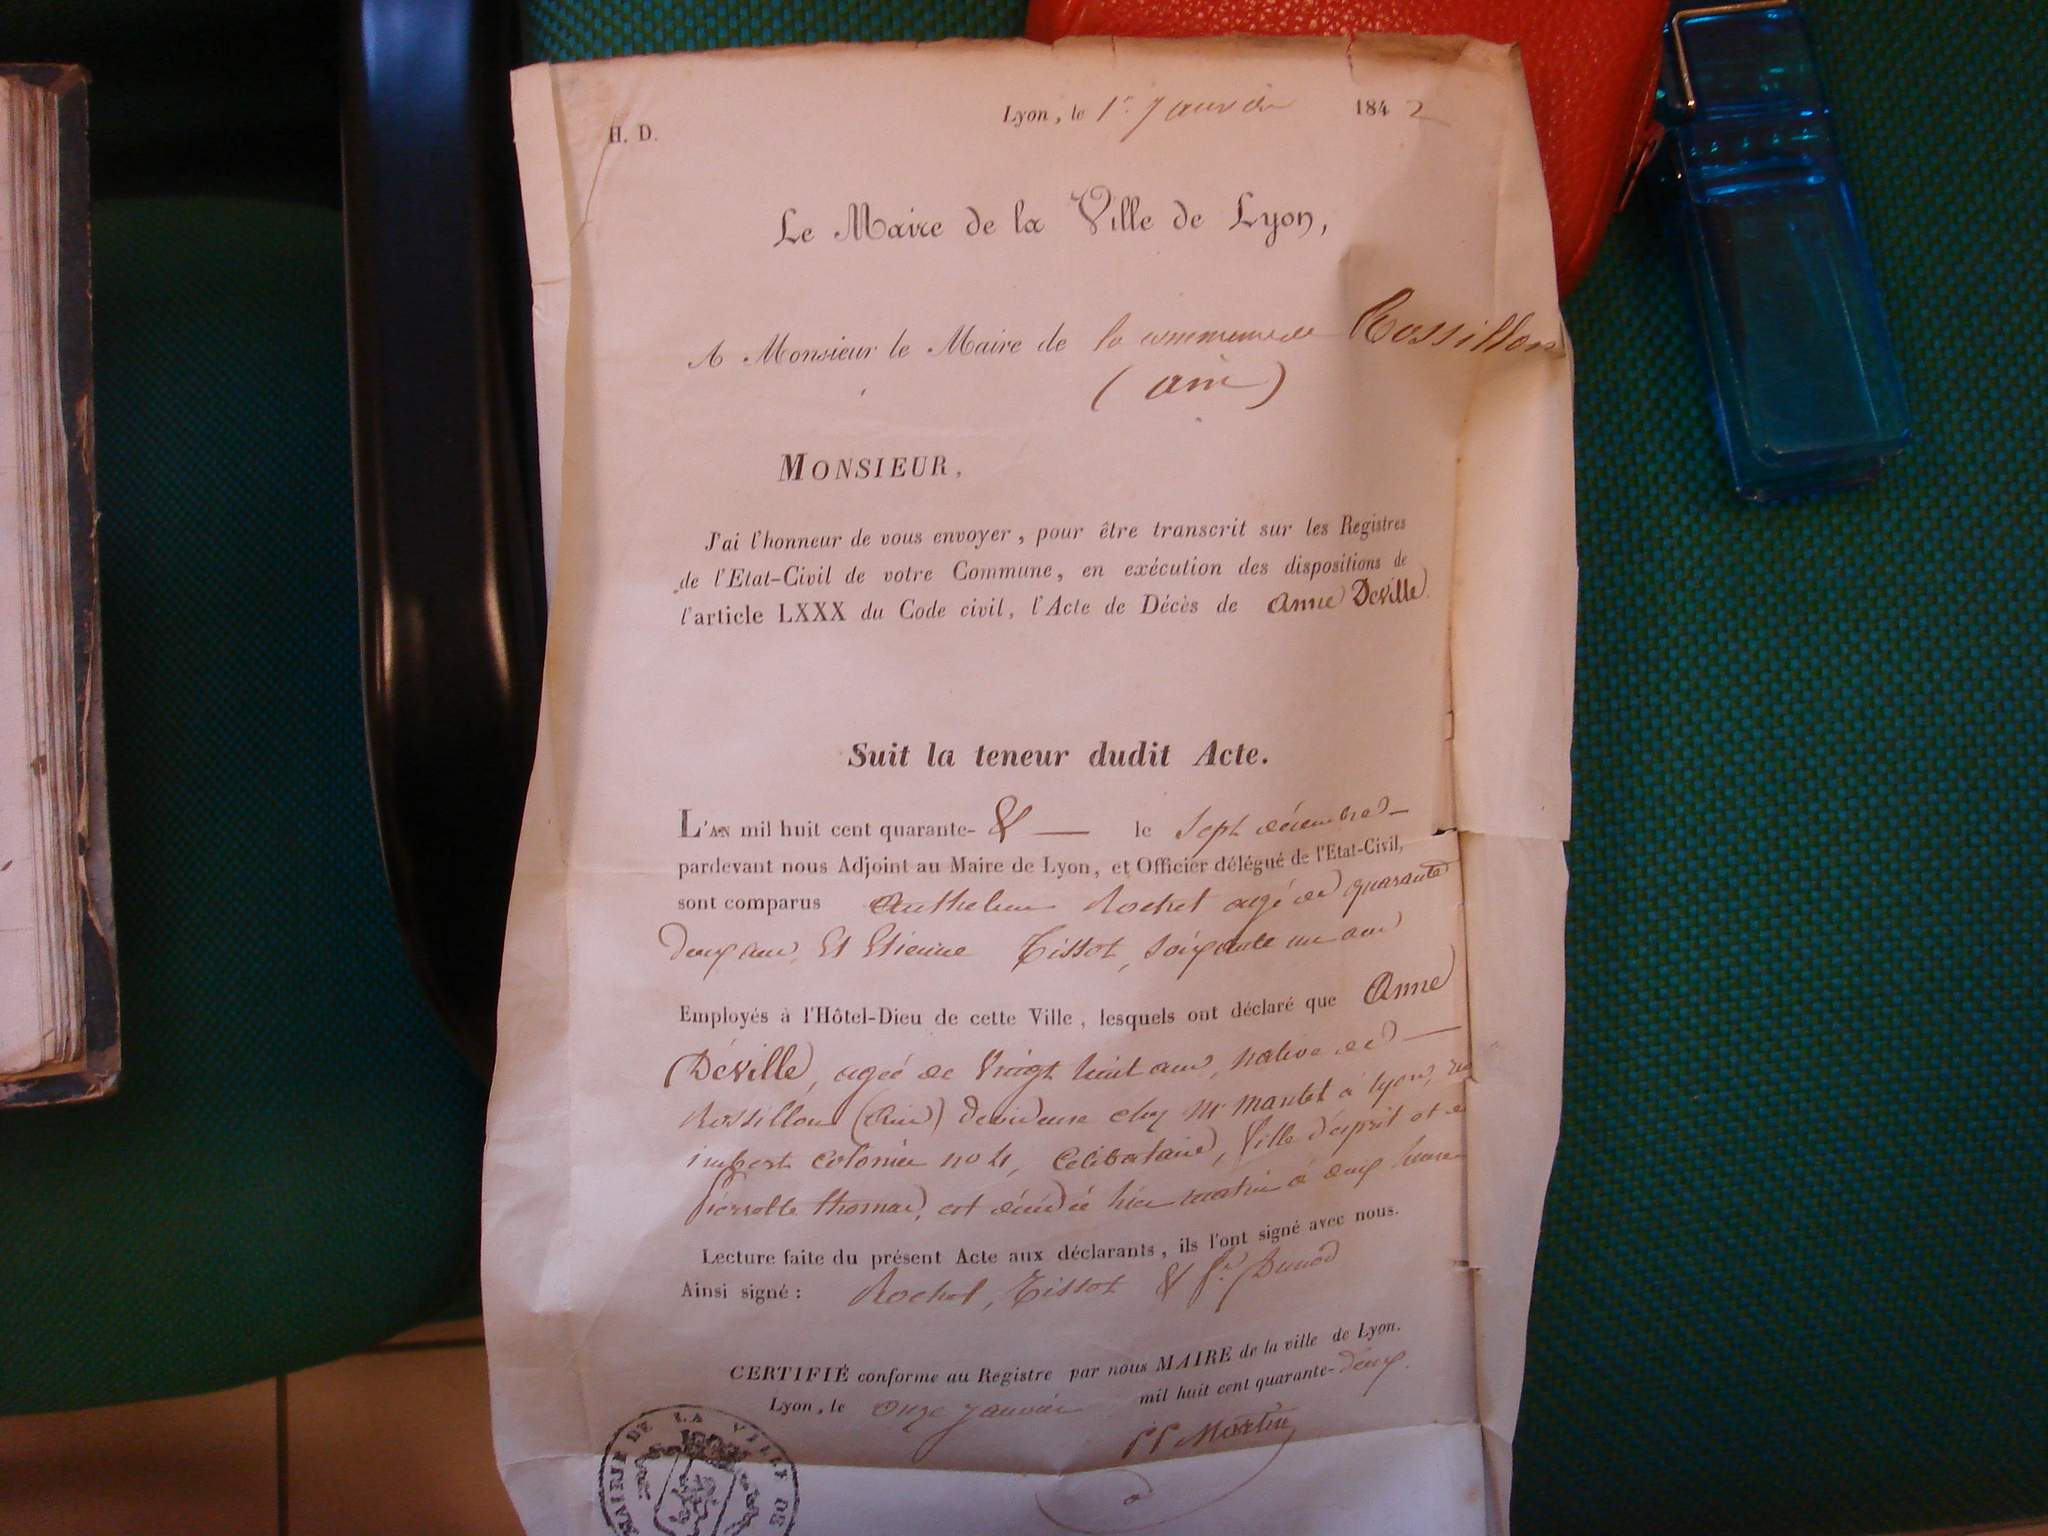 H. D.
Lyon, le 1er Janvier 1842
Le Maire de la Ville de Lyon,
A Monsieur le Maire de la commune de Rossillon
(ain)
MONSIEUR,
J'ai l'honneur de vous envoyer, pour être transcrit sur les Registres
de l'Etat-Civil de votre Commune, en exécution des dispositions de
l'article LXXX du Code civil, l'Acte de Décès de Anne Deville
Suit la teneur dudit Acte.
L'AN mil huit cent quarante- & — le sept décembre —
pardevant nous Adjoint au Maire de Lyon, et Officier délégué de l'Etat-Civil,
sont comparus Anthelme Rochet agé de quarante
deux ans, Et Etienne Tissot, soixante un ans
Employés à l'Hôtel-Dieu de cette Ville, lesquels ont déclaré que Anne
Déville, agée de vingt huit ans, native de —
Rossillon (Ain) devideuse chez Mr mantel à Lyon,
no 4, Célibataire, fille d'esprit et
Pierrette thomas, est décédée hier matin à heures
Lecture faite du présent Acte aux déclarants, ils l'ont signé avec nous.
Ainsi signé : Rochet, Tissot &
CERTIFIÉ conforme au Registre par nous MAIRE de la ville de Lyon.
Lyon, le onze janvier mil huit cent quarante-deux.
Martin
MAIRIE DE LA VILLE DE